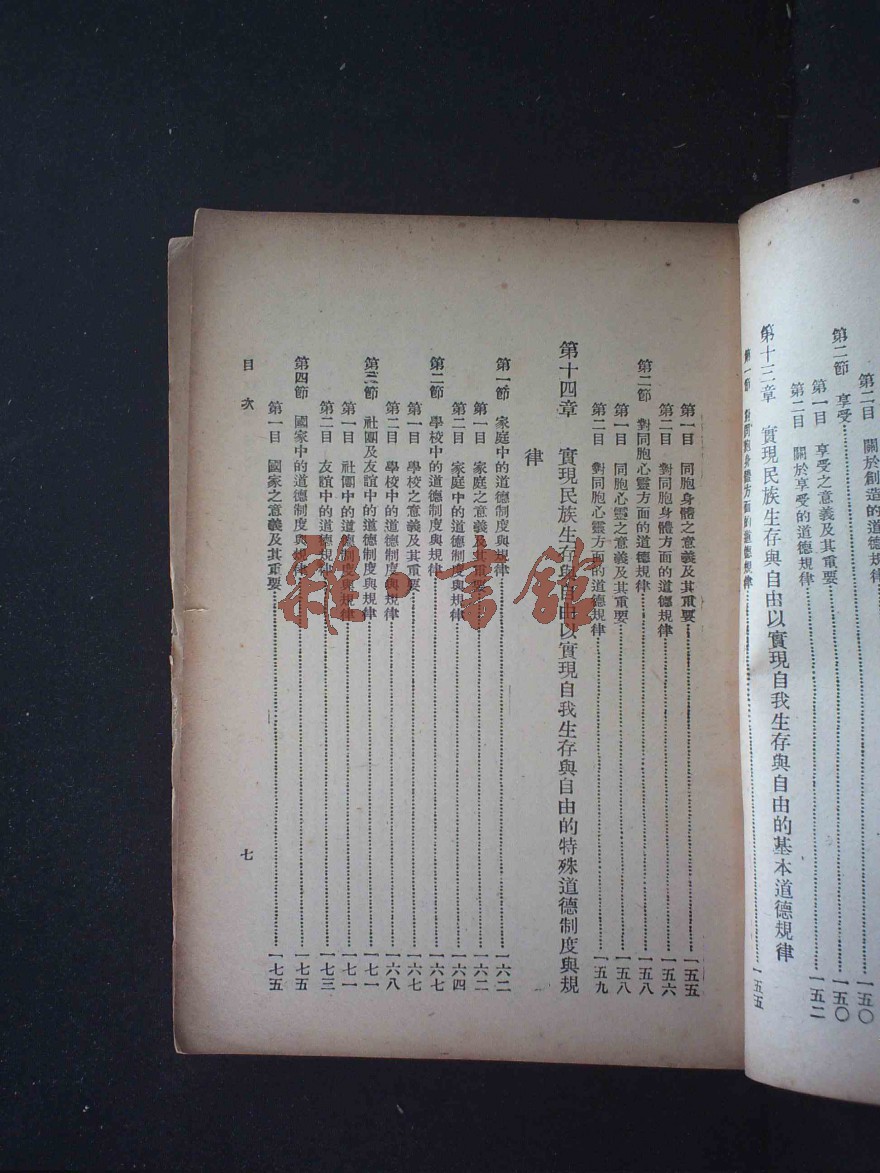 第二目　關於創造的道德規律……一五〇
第二節　享受……一五〇
第一目　享受之意義及其重要……一五二
第二目　關於享受的道德規律
第十三章　實現民族生存與自由以實現自我生存與自由的基本道德規律
第一節　對同胞身體方面的道德規律……一五五
第一目　同胞身體之意義及其重要……一五五
第二目　對同胞身體方面的道德規律……一五六
第二節　對同胞心靈方面的道德規律……一五八
第一目　同胞心靈之意義及其重要……一五八
第二目　對同胞心靈方面的道德規律……一五九
第十四章　實現民族生存與自由以實現自我生存與自由的特殊道德制度與規
律
第一節　家庭中的道德制度與規律……一六二
第一目　家庭之意義及其重要……一六二
第二目　家庭中的道德制度與規律……一六四
第二節　學校中的道德制度與規律……一六七
第一目　學校之意義及其重要……一六七
第二目　學校中的道德制度與規律……一六八
第三節　社團及友誼中的道德制度與規律……一七一
第一目　社團中的道德制度與規律……一七一
第二目　友誼中的道德規律……一七三
第四節　國家中的道德制度與規律……一七五
第一目　國家之意義及其重要……一七五
目次
七
雜書館